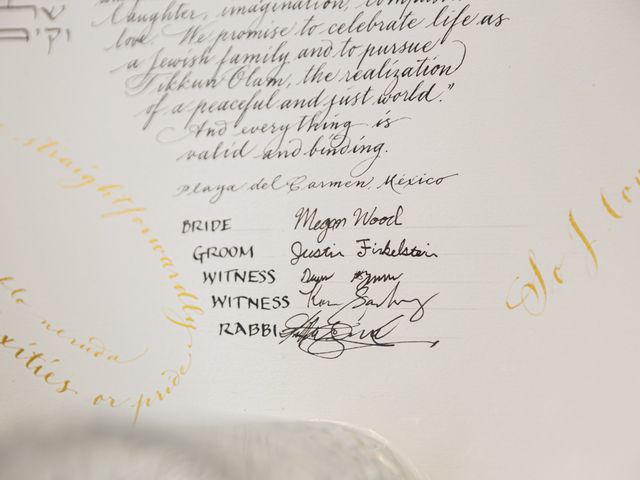 Laughter, imagination,
love. We promise to celebrate life as
a Jewish family and to pursue
Tikkun Olam, the realization
of a peaceful and just world."
And everything is
valid and binding.
Playa del Carmen, México
BRIDE Megan Wood
GROOM Justin Finkelstein
WITNESS
WITNESS
RABBI
straightforwardly
exities or pride
So I